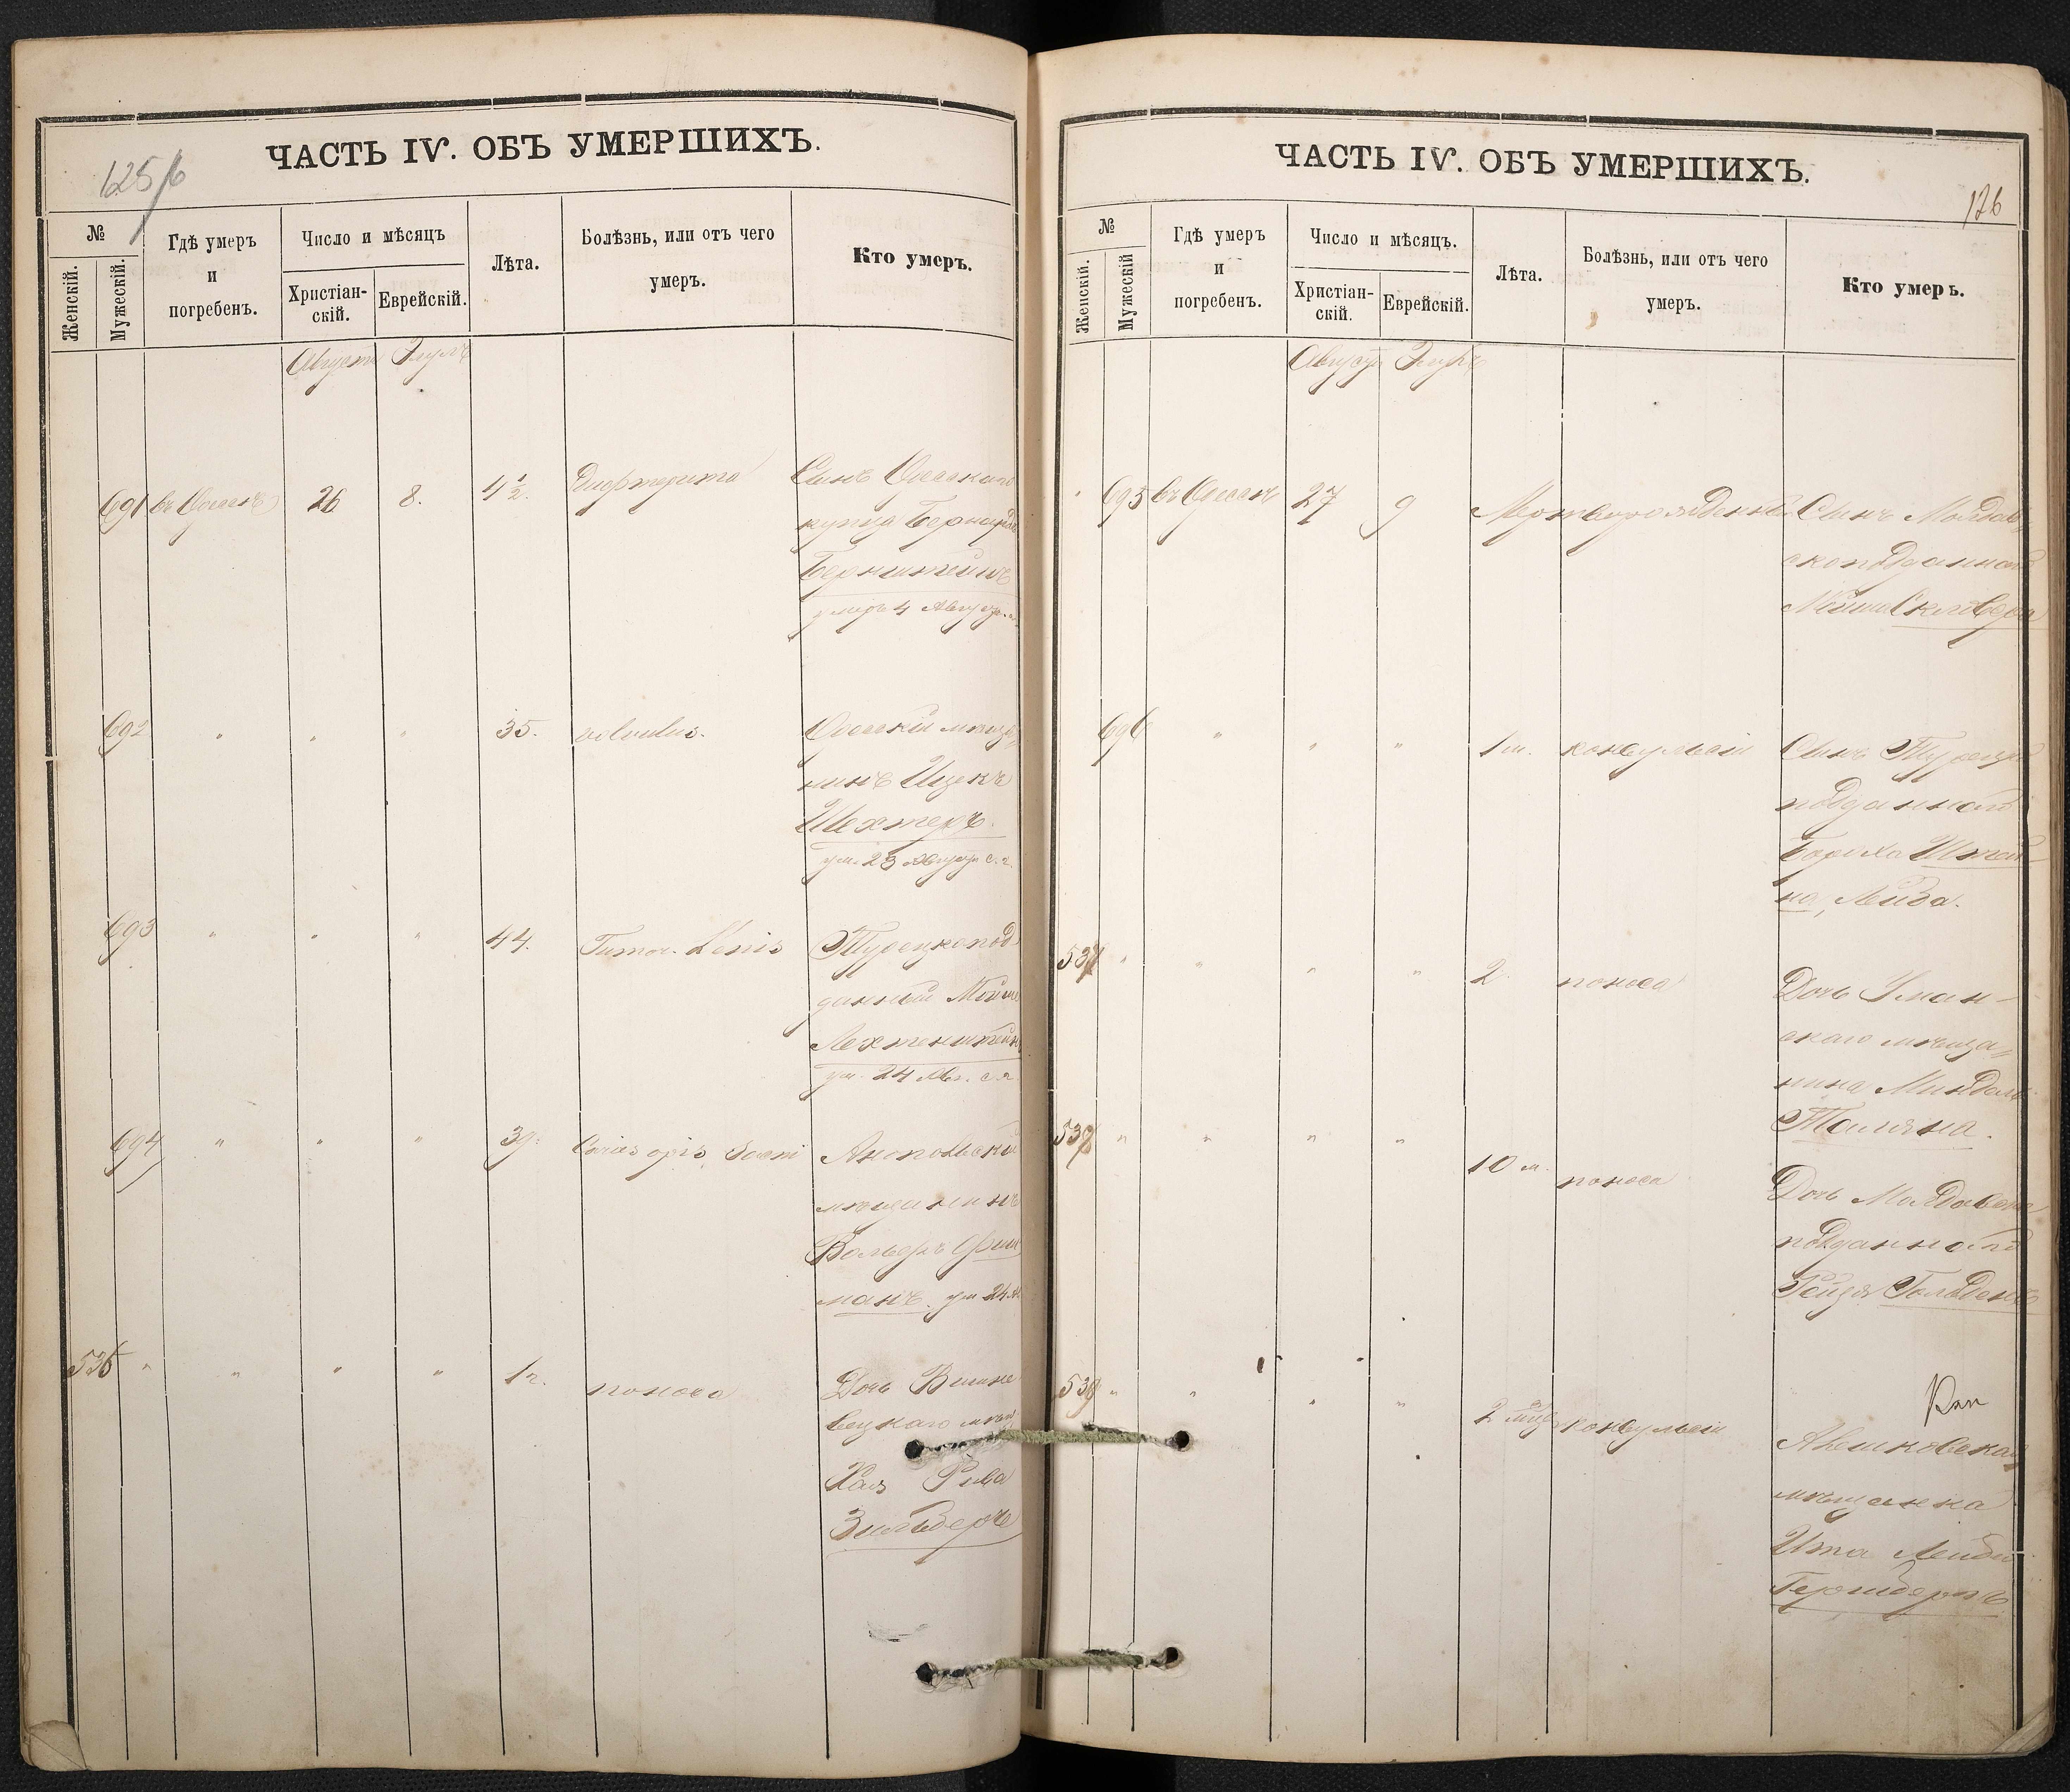 ЧАСТЬ IV. ОБЪ УМЕРШИХЪ.
125/6
№
Женскій.
Мужескій.
Гдѣ умеръ
и
погребенъ.
Число и мѣсяцъ
Христіан-
скій.
Еврейскій.
Лѣта.
Болѣзнь, или отъ чего
умеръ.
Кто умеръ.
Августъ Элулъ
691 въ Одессѣ 26 8. 4 1/2. Дифтерита Сынъ Одесскаго
купца Бернарда
Бернштейнъ
умеръ 4 Август
692 " " " 35. volvulus. Одесскій мѣща-
нинъ Ицекъ
Шехтеръ.
ум. 23 Август с. г.
693 " " " 44. Tumor Lienis Турецкопод-
данный Мойше
Лехтенштейнъ
ум. 24 Авг. с. г.
694 " " " 39. Caries Анопольскій
мѣщанинъ
Вольфъ Фиш
манъ. ум 24 А
536 " " " " 1 г. поноса Дочь Вишне
вецкаго мѣщ
Хая Рива
Зильберъ
ЧАСТЬ IV. ОБЪ УМЕРШИХЪ.
126
№
Женскій.
Мужескій
Гдѣ умеръ
и
погребенъ.
Число и мѣсяцъ.
Христіан-
скій.
Еврейскій.
Лѣта.
Болѣзнь, или отъ чего
умеръ.
Кто умеръ.
Августъ Элулъ
695 въ Одессѣ 27 9 Мертворожденный Сынъ Молдав-
скоподданнаго
Мойши Склявера
696 " " " 1 м. конвульсіи Сынъ Турецко
подданнаго
Боруха Штей-
на, Лейза.
537 " " " " 2. поноса Дочь Уман-
скаго мѣща-
нина Миндель
Таляна.
538 " " " " 10 м. поноса Дочь Молдавско
подданнаго
Рейзя Гольденъ
539 " " " " 2 конвульсіи
мѣщанка
Ита Лейби
Гершберга